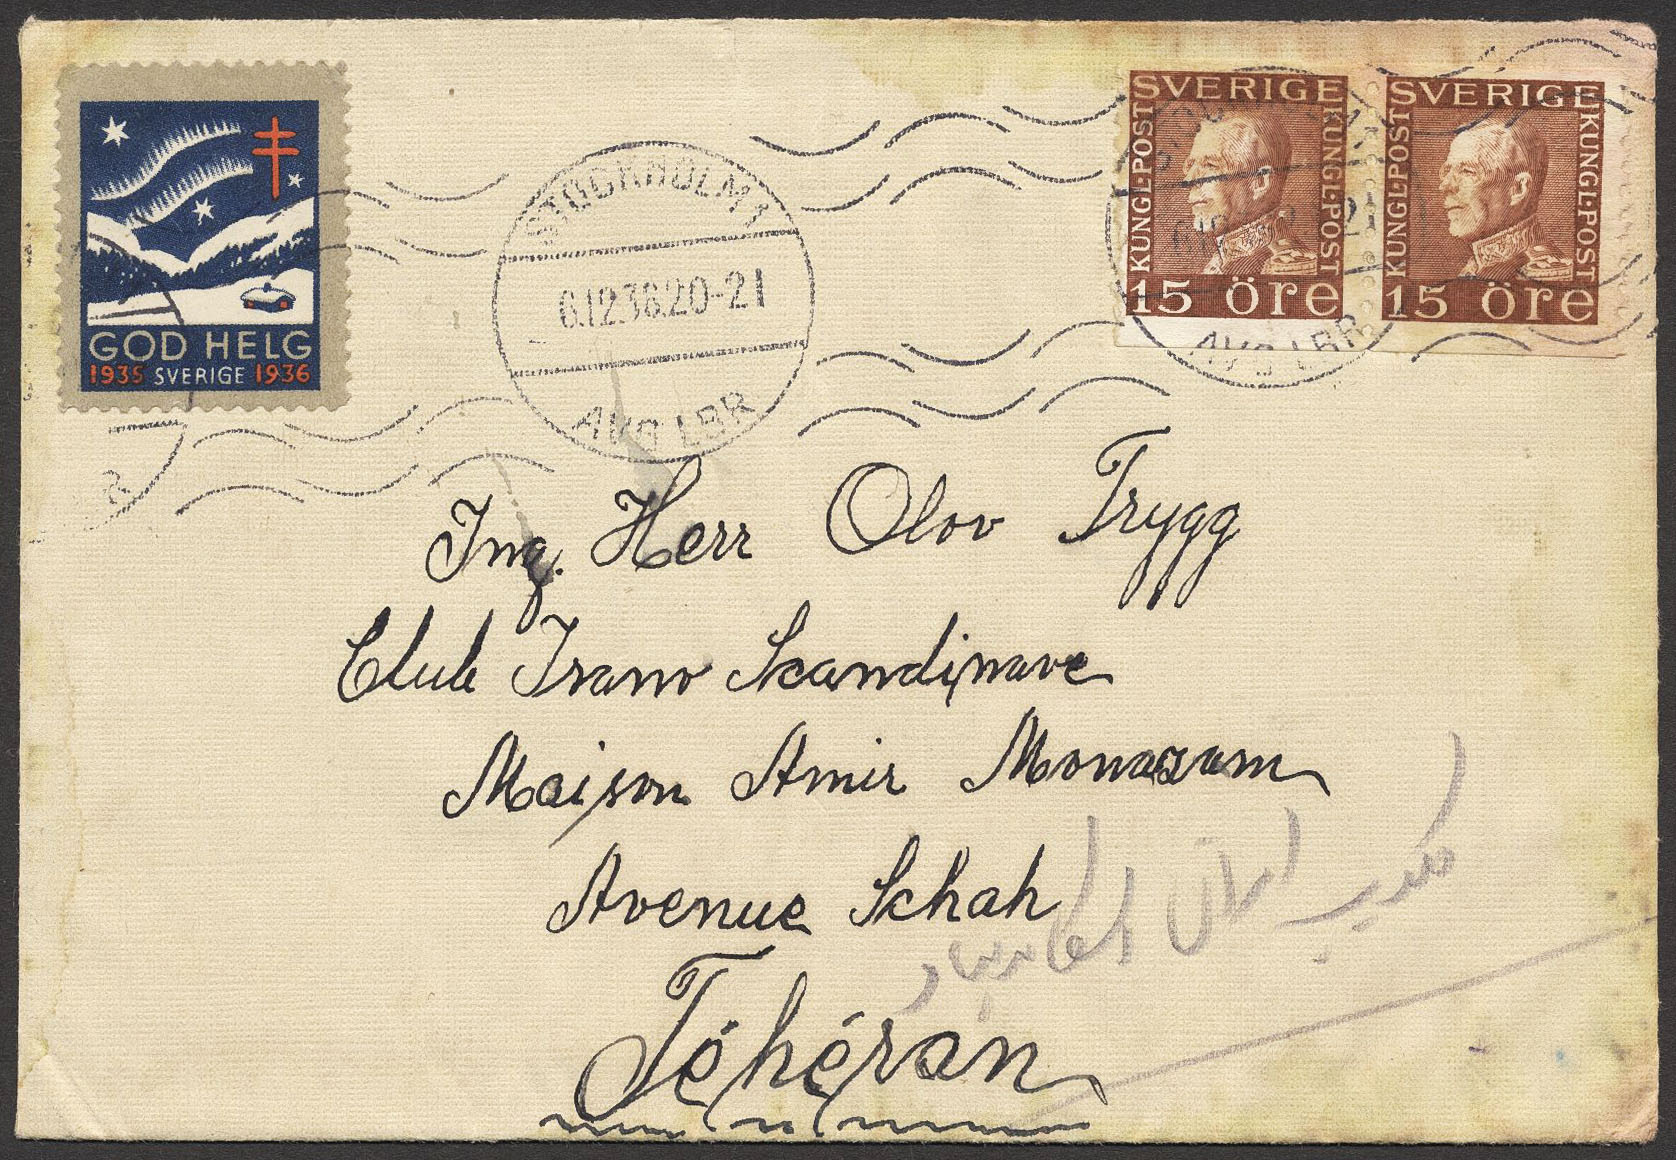 GOD HELG
1935 SVERIGE 1936
STOCKHOLM 1
6.12.36.20-21
AVG LBR
SVERIGE
KUNGL·POST
KUNGL·POST
15 öre
SVERIGE
KUNGL·POST
KUNGL·POST
15 öre
AVG LBR
Ing. Herr Olov Trygg
Club Irano Skandinave
Maison Amir Monazam
Avenue Schah
Téhéran
کلوب ایران